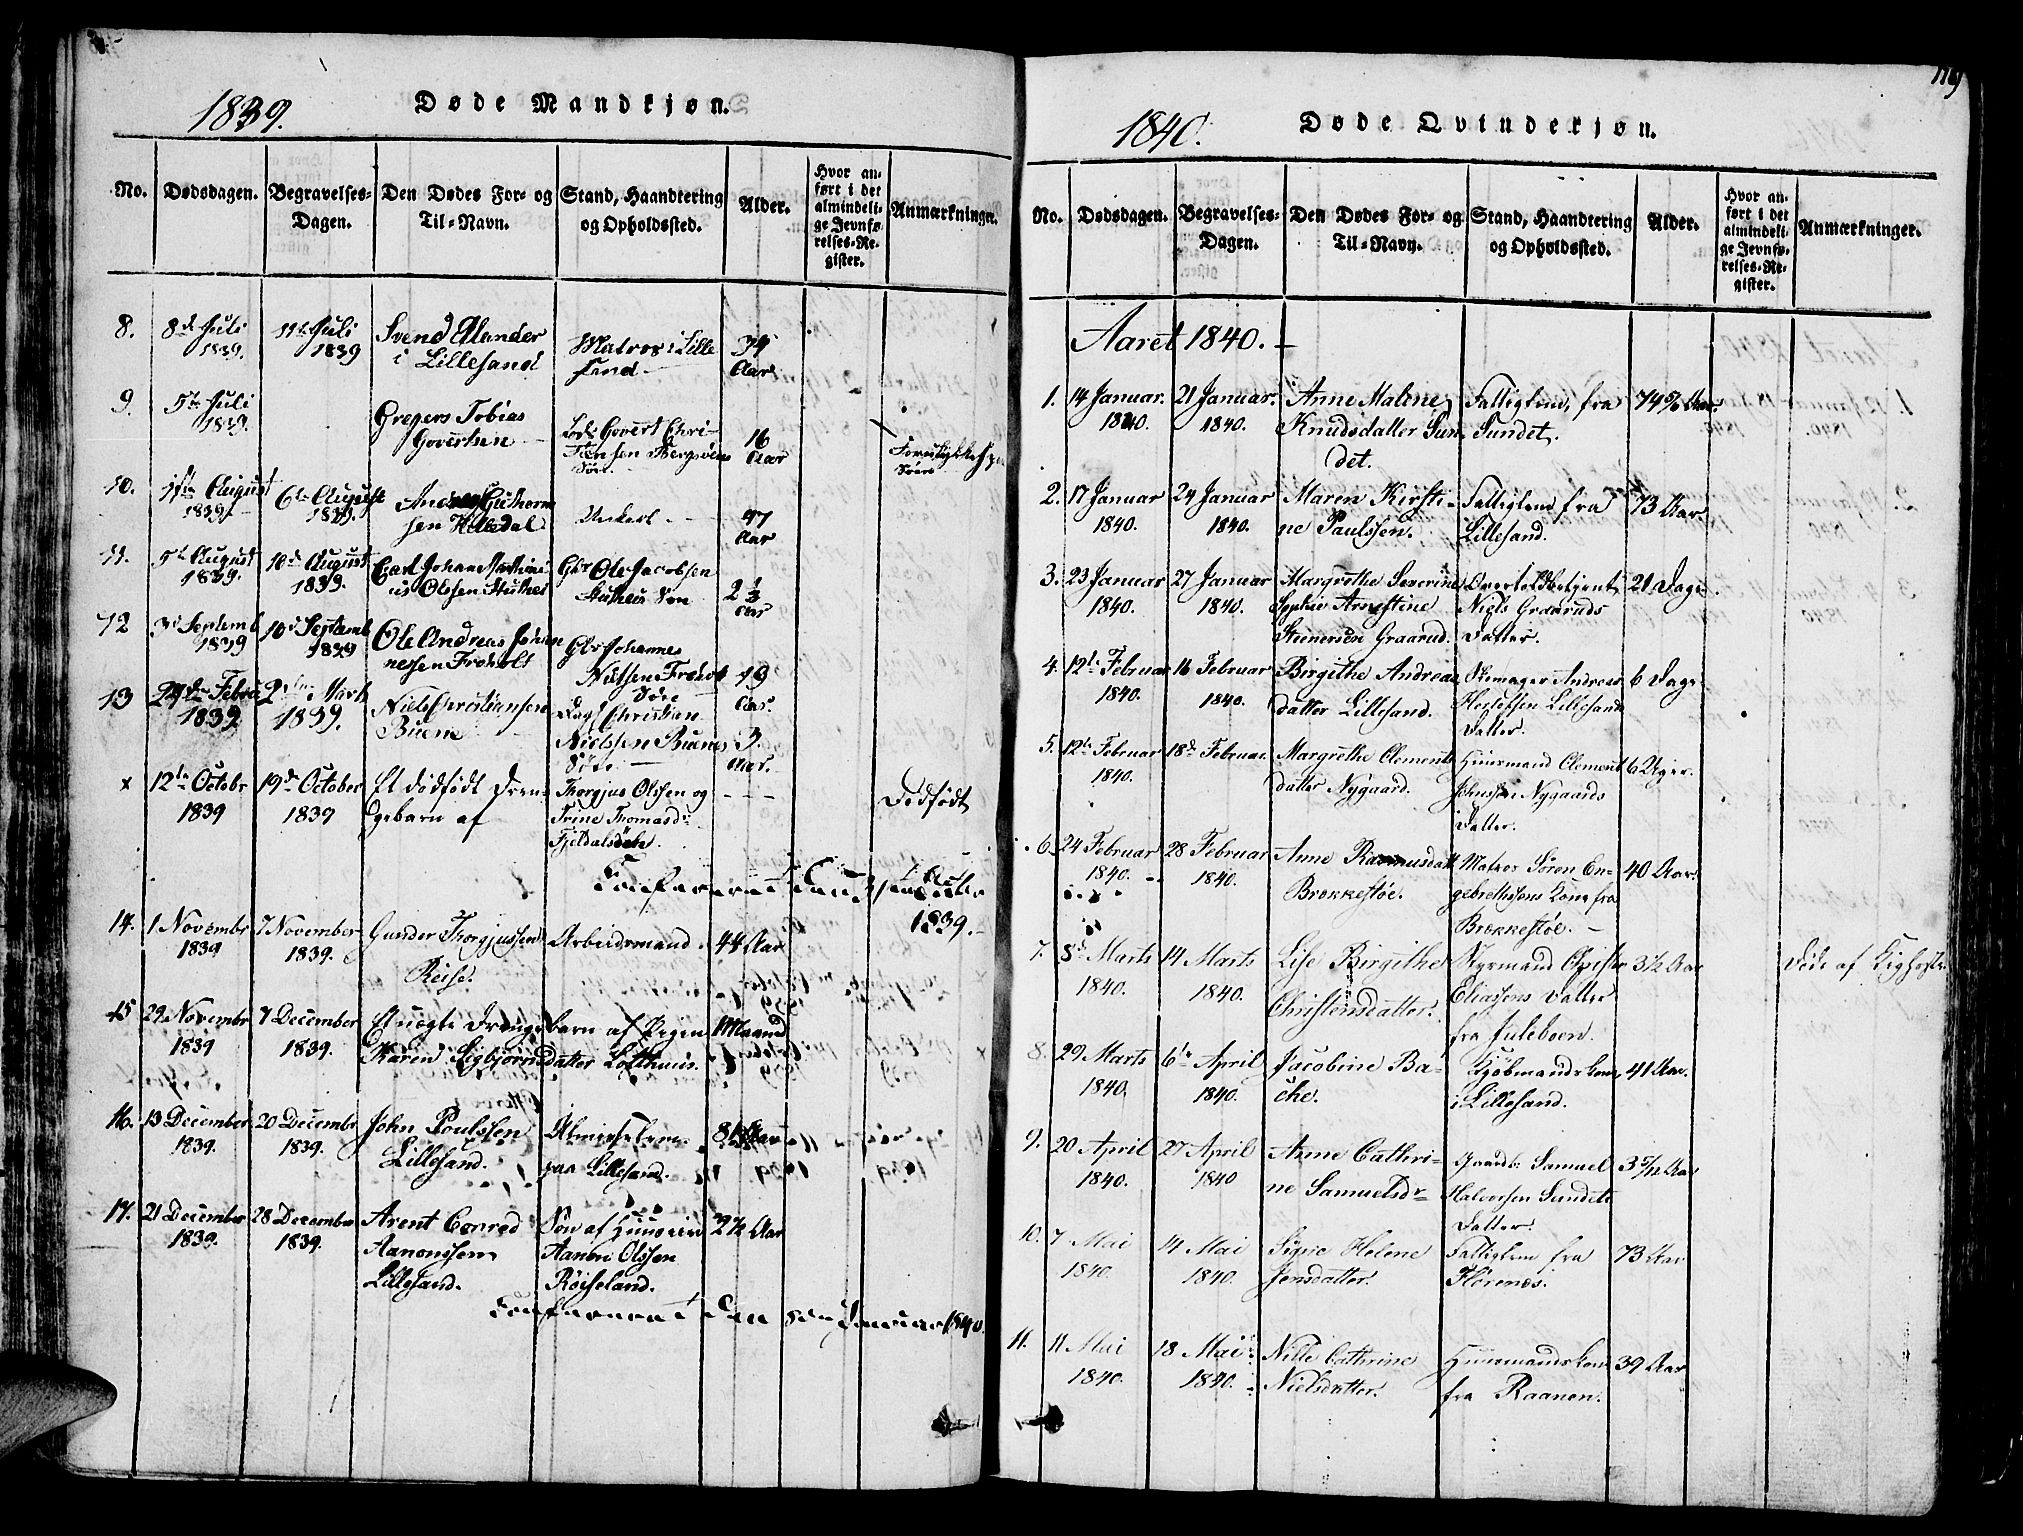 1839.
Døde Mandkjøn.
No.
Dødsdagen.
Begravelses-
Dagen.
Den Dødes For- og
Til-Navn.
Stand, Haandtering
og Opholdssted.
Alder.
Hvor an-
ført i det
almindeli-
ge Jevnfø-
relses-Re-
gister.
Anmærkninger.
8.
8de Juli
1839.
11te Juli
1839
Svend
i Lillesand
Matros i Lille
sand
Aar
9.
5te Juli
1839.
Gregers Tobias
Govertsen
Lods Govert Chri-
stensen
Søn
16
Aar
10.
1ste August
1839.
6te August
1839.
Guthorm
sen
Unkarl
Aar
11.
5te August
1839.
10de August
1839.
Carl Johan
us Olssen
Ole Jacobsen
Søn
2 1/3
Aar
12
3d Septemb
1839
10d Septemb
1839
Ole Andreas Johan
nessen
Johannes
Søn
19
Aar.
13
Febru
1839
2den Mart
1839.
Niels Christiansen
Buene
Christian
Nielssen Buenes
Søn
3.
Aar.
x
12te Octobr
1839
19de October
1839
Et dødfødt Dren-
gebarn af
Thorgjus Olssen og
Trine Thomasdr
Fjeldalsden.
Dødfødt
Confereret den
1839.
14.
1 Novembr
1839
7 November
1839.
Gunder Thorgjussen
Reise.
Arbeidsmand.
44 Aar
15
29 Novembr
1839
7 December
1839.
Et uægte Drengebarn af Pigen
Karen Sigbjørnsdatter Lofthuus.
1 Maaned
16.
13 December
1839.
20 Decembr
1839.
John Poulssen
Lillesand.
Almisselem
paa Lillesand.
Aar
17.
21 December
1839.
28 December
1839.
Arent Conrad
Aanonssen
Lillesand.
Søn af
Aanon Olssen
Røiseland.
2 1/2 Aar
Confereret den Januar 1840.
119
1840.
Døde Qvindekjøn.
No.
Dødsdagen.
Begravelses-
Dagen.
Den Dødes For- og
Til-Navn.
Stand, Haandtering
og Opholdssted.
Alder.
Hvor an-
ført i det
almindeli-
ge Jevnfø-
relses-Re-
gister.
Anmærkninger.
Aaret 1840.
1.
14 Januar.
1840.
21 Januar.
1840.
Anne Malene
Knudsdatter Sun
det.
Fattiglem, fra
Sundet.
Aar.
2.
17 Januar
1840.
24 Januar
1840.
Maren Kirsti-
ne Paulssen.
Fattiglem fra
Lillesand.
73 Aar.
3.
23 Januar
1840.
27 Januar
1840.
Margrethe Severine
Sophie Arnestine
Steinersen Graarud.
Overtoldbetjent
Niels Graaruds
Datter.
21 Dage.
4.
12te Februar
1840.
16 Februar
1840.
Birgithe Andreas
datter Lillesand.
Skomager Andreas
Lillesands
Datter.
6 Dage
5.
12te Februar
1840.
18de Februar.
Margrethe Clements
datter Nygaard.
Huusmand Clement
Johnssen Nygaards
Datter.
6 Uger.
6.
24 Februar
1840.
28 Februar
1840.
Anne Rasmusdatt
Brekkestøe.
Matros Søren En-
gebrethssens Kone fra
Brekkestøe.
40 Aar.
7.
8de Marts
1840.
14 Marts
1840.
Lise Birgithe
Christensdatter.
Styrmand
Eliassens Datter
fra Juleboen.
3 1/2 Aar
Døde af Kighoste.
8.
29 Marts
1840.
6te April
1840.
Jacobine Ba-
che.
Kjøbmandskone
i Lillesand.
41 Aar.
9.
20 April
1840.
27 April
1840
Anne Cathri-
ne Samuelsdr
Gaardbr Samuel
Halvorsen Sundets
Datter.
3 5/12 Aar
10.
7 Mai
1840.
14 Mai
1840.
Helene
Jensdatter.
Fattiglem fra
73 Aar
11.
11 Mai
1840.
18 Mai
1840.
Nille Cathrine
Nielsdatter.
Huusmandskone
fra Raanen.
39 Aar